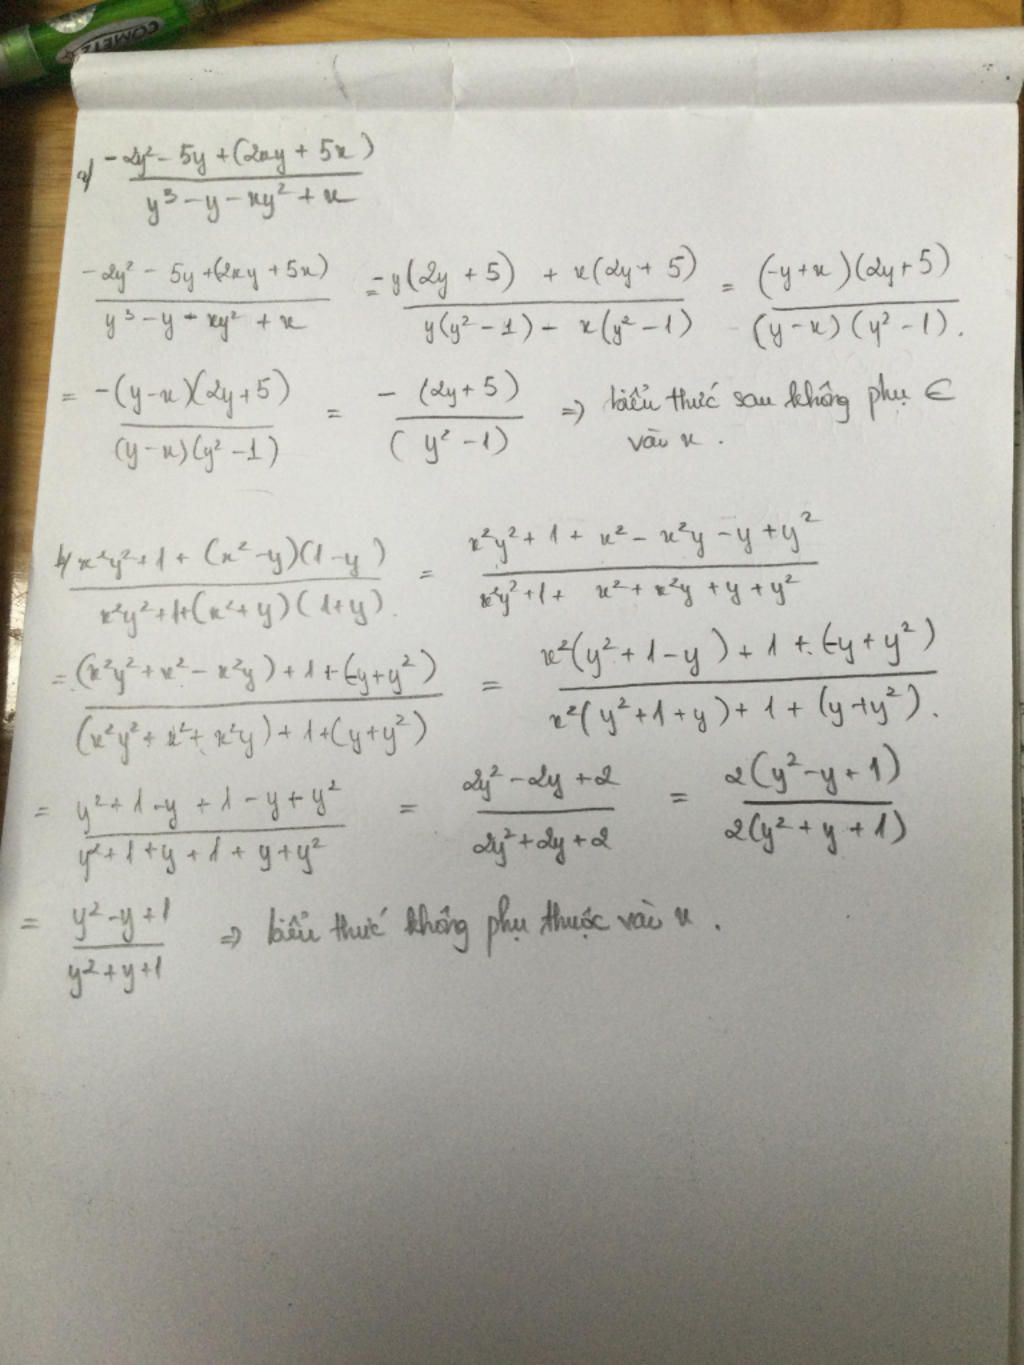 COMET
a/ (-2y² - 5y + (2xy + 5x)) / (y³ - y - xy² + x)
(-2y² - 5y + (2xy + 5x)) / (y³ - y - xy² + x) = (-y(2y + 5) + x(2y + 5)) / (y(y² - 1) - x(y² - 1)) = ((-y + x)(2y + 5)) / ((y - x)(y² - 1)).
= (-(y - x)(2y + 5)) / ((y - x)(y² - 1)) = (-(2y + 5)) / ((y² - 1)) => biểu thức sau không phụ ∈
vào x.
b/ (x²y² + 1 + (x² - y)(1 - y)) / (x²y² + 1 + (x² + y)(1 + y)) = (x²y² + 1 + x² - x²y - y + y²) / (x²y² + 1 + x² + x²y + y + y²)
= ((x²y² + x² - x²y) + 1 + (-y + y²)) / ((x²y² + x² + x²y) + 1 + (y + y²)) = (x²(y² + 1 - y) + 1 + (-y + y²)) / (x²(y² + 1 + y) + 1 + (y + y²)).
= (y² + 1 - y + 1 - y + y²) / (y² + 1 + y + 1 + y + y²) = (2y² - 2y + 2) / (2y² + 2y + 2) = (2(y² - y + 1)) / (2(y² + y + 1))
= (y² - y + 1) / (y² + y + 1) => biểu thức không phụ thuộc vào x.